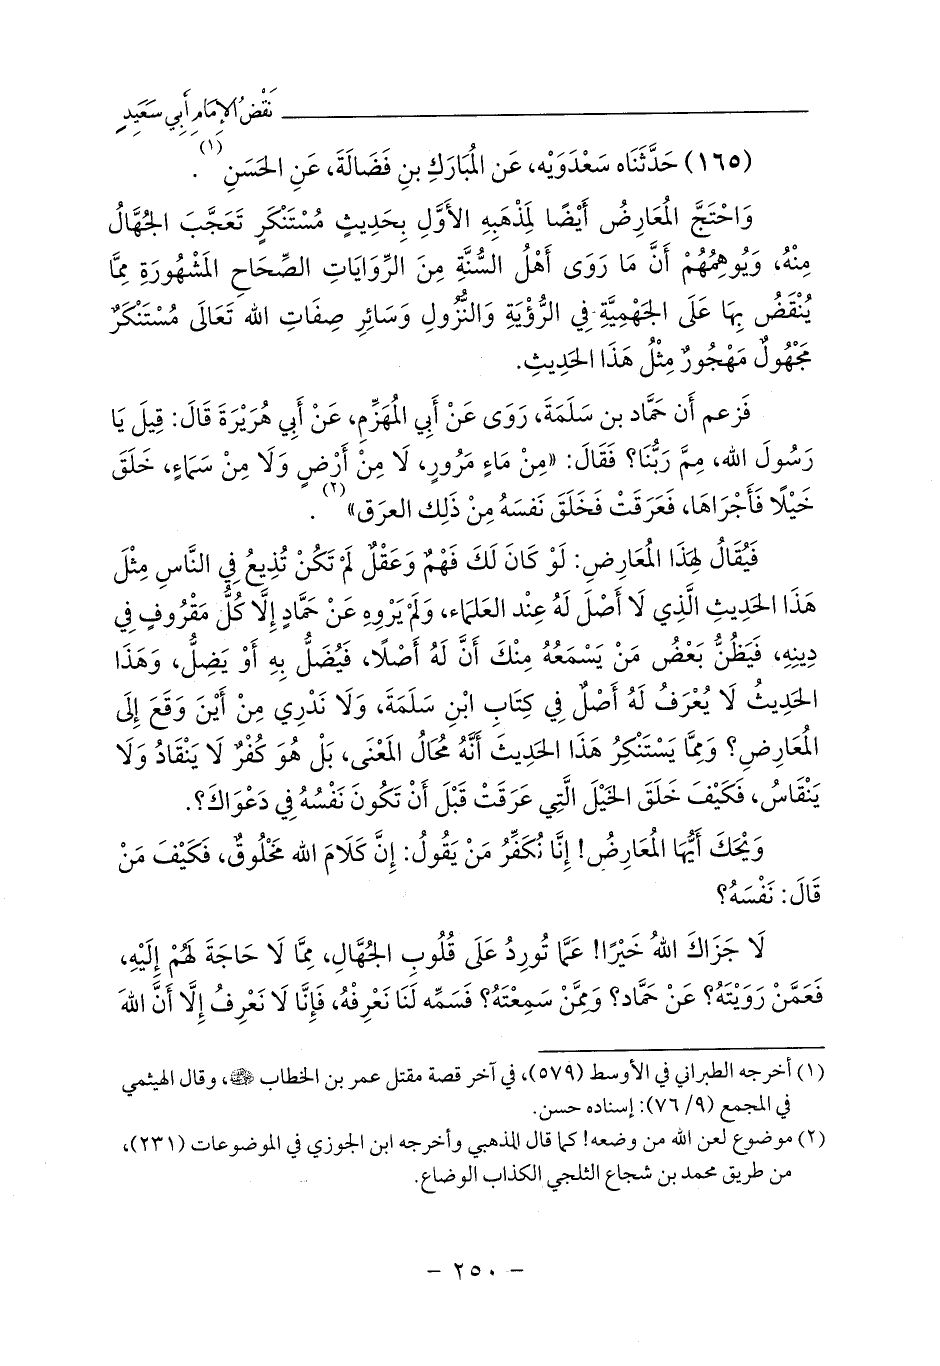 نَقْضُ الإِمَامِ أَبِي سَعَيدٍ
(١٦٥) حَدَّثَنَاه سَعْدَوَيْه، عَن المُبَارَكِ بنِ فَضَالَةَ، عَنِ الحَسَنِ (١) .
وَاحْتَجَّ المُعَارِضُ أَيْضًا لِمَذْهَبِهِ الأَوَّلِ بِحَدِيثٍ مُسْتَنْكَرٍ تَعَجَّبَ الجُهَّالُ
مِنْهُ، وَيُوهِمُهُمْ أَنَّ مَا رَوَى أَهْلُ السُّنَّةِ مِنَ الرِّوَايَاتِ الصِّحَاحِ المَشْهُورَةِ مِمَّا
يُنْقَضُ بِهَا عَلَى الجَهْمِيَّةِ فِي الرُّؤْيَةِ وَالنُّزُولِ وَسَائِرِ صِفَاتِ الله تَعَالَى مُسْتَنْكَرٌ
مَجْهُولٌ مَهْجُورٌ مِثْلُ هَذَا الحَدِيثِ.
فَزعم أَن حَمَّاد بن سَلَمَةَ، رَوَى عَنْ أَبِي المُهَزِّمِ، عَنْ أَبِي هُرَيْرَةَ قَالَ: قِيلَ يَا
رَسُولَ الله، مِمَّ رَبُّنَا؟ فَقَالَ: «مِنْ مَاءٍ مَرُورٍ، لَا مِنْ أَرْضٍ وَلَا مِنْ سَمَاءٍ، خَلَقَ
خَيْلًا فَأَجْرَاهَا، فَعَرَقَتْ فَخَلَقَ نَفسَهُ مِنْ ذَلِك العرَق» (٢) .
فَيُقَالُ لِهَذَا المُعَارِضِ: لَوْ كَانَ لَكَ فَهْمٌ وَعَقْلٌ لَمْ تَكُنْ تُذِيعُ فِي النَّاسِ مِثْلَ
هَذَا الحَدِيثِ الَّذِي لَا أَصْلَ لَهُ عِنْد العلمَاء، وَلَمْ يَرْوِهِ عَنْ حَمَّادٍ إِلَّا كُلُّ مَقْرُوفٍ فِي
دِينِهِ، فَيَظُنُّ بَعْضُ مَنْ يَسْمَعُهُ مِنْكَ أَنَّ لَهُ أَصْلًا، فَيُضَلُّ بِهِ أَوْ يَضِلُّ، وَهَذَا
الحَدِيثُ لَا يُعْرَفُ لَهُ أَصْلٌ فِي كِتَابِ ابْنِ سَلَمَةَ، وَلَا نَدْرِي مِنْ أَيْنَ وَقَعَ إِلَى
المُعَارِضِ؟ وَمِمَّا يَسْتَنْكِرُ هَذَا الحَدِيثَ أَنَّهُ مُحَالُ المَعْنَى، بَلْ هُوَ كُفْرٌ لَا يَنْقَادُ وَلَا
يَنْقَاسُ، فَكَيْفَ خَلَقَ الخَيْلَ الَّتِي عَرَقَتْ قَبْلَ أَنْ تَكُونَ نَفْسُهُ فِي دَعْوَاكَ؟.
وَيْحَكَ أَيُّهَا المُعَارِضُ! إِنَّا نُكَفِّرُ مَنْ يَقُولُ: إِنَّ كَلَامَ الله مَخْلُوقٌ، فَكَيْفَ مَنْ
قَالَ: نَفْسَهُ؟
لَا جَزَاكَ اللهُ خَيْرًا! عَمَّا تُورِدُ عَلَى قُلُوبِ الجُهَّالِ، مِمَّا لَا حَاجَةَ لَهُمْ إِلَيْهِ،
فَعَمَّنْ رَوَيْتَهُ؟ عَنْ حَمَّاد؟ وَمِمَّنْ سَمِعْتَهُ؟ فَسَمِّه لَنَا نَعْرِفْهُ، فَإِنَّا لَا نَعْرِفُ إِلَّا أَنَّ اللهَ
(١) أخرجه الطبراني في الأوسط (٥٧٩)، في آخر قصة مقتل عمر بن الخطاب ﵁، وقال الهيثمي
في المجمع (٩/ ٧٦): إسناده حسن.
(٢) موضوع لعن الله من وضعه! كما قال الذهبي وأخرجه ابن الجوزي في الموضوعات (٢٣١)،
من طريق محمد بن شجاع الثلجي الكذاب الوضاع.
- ٢٥٠ -